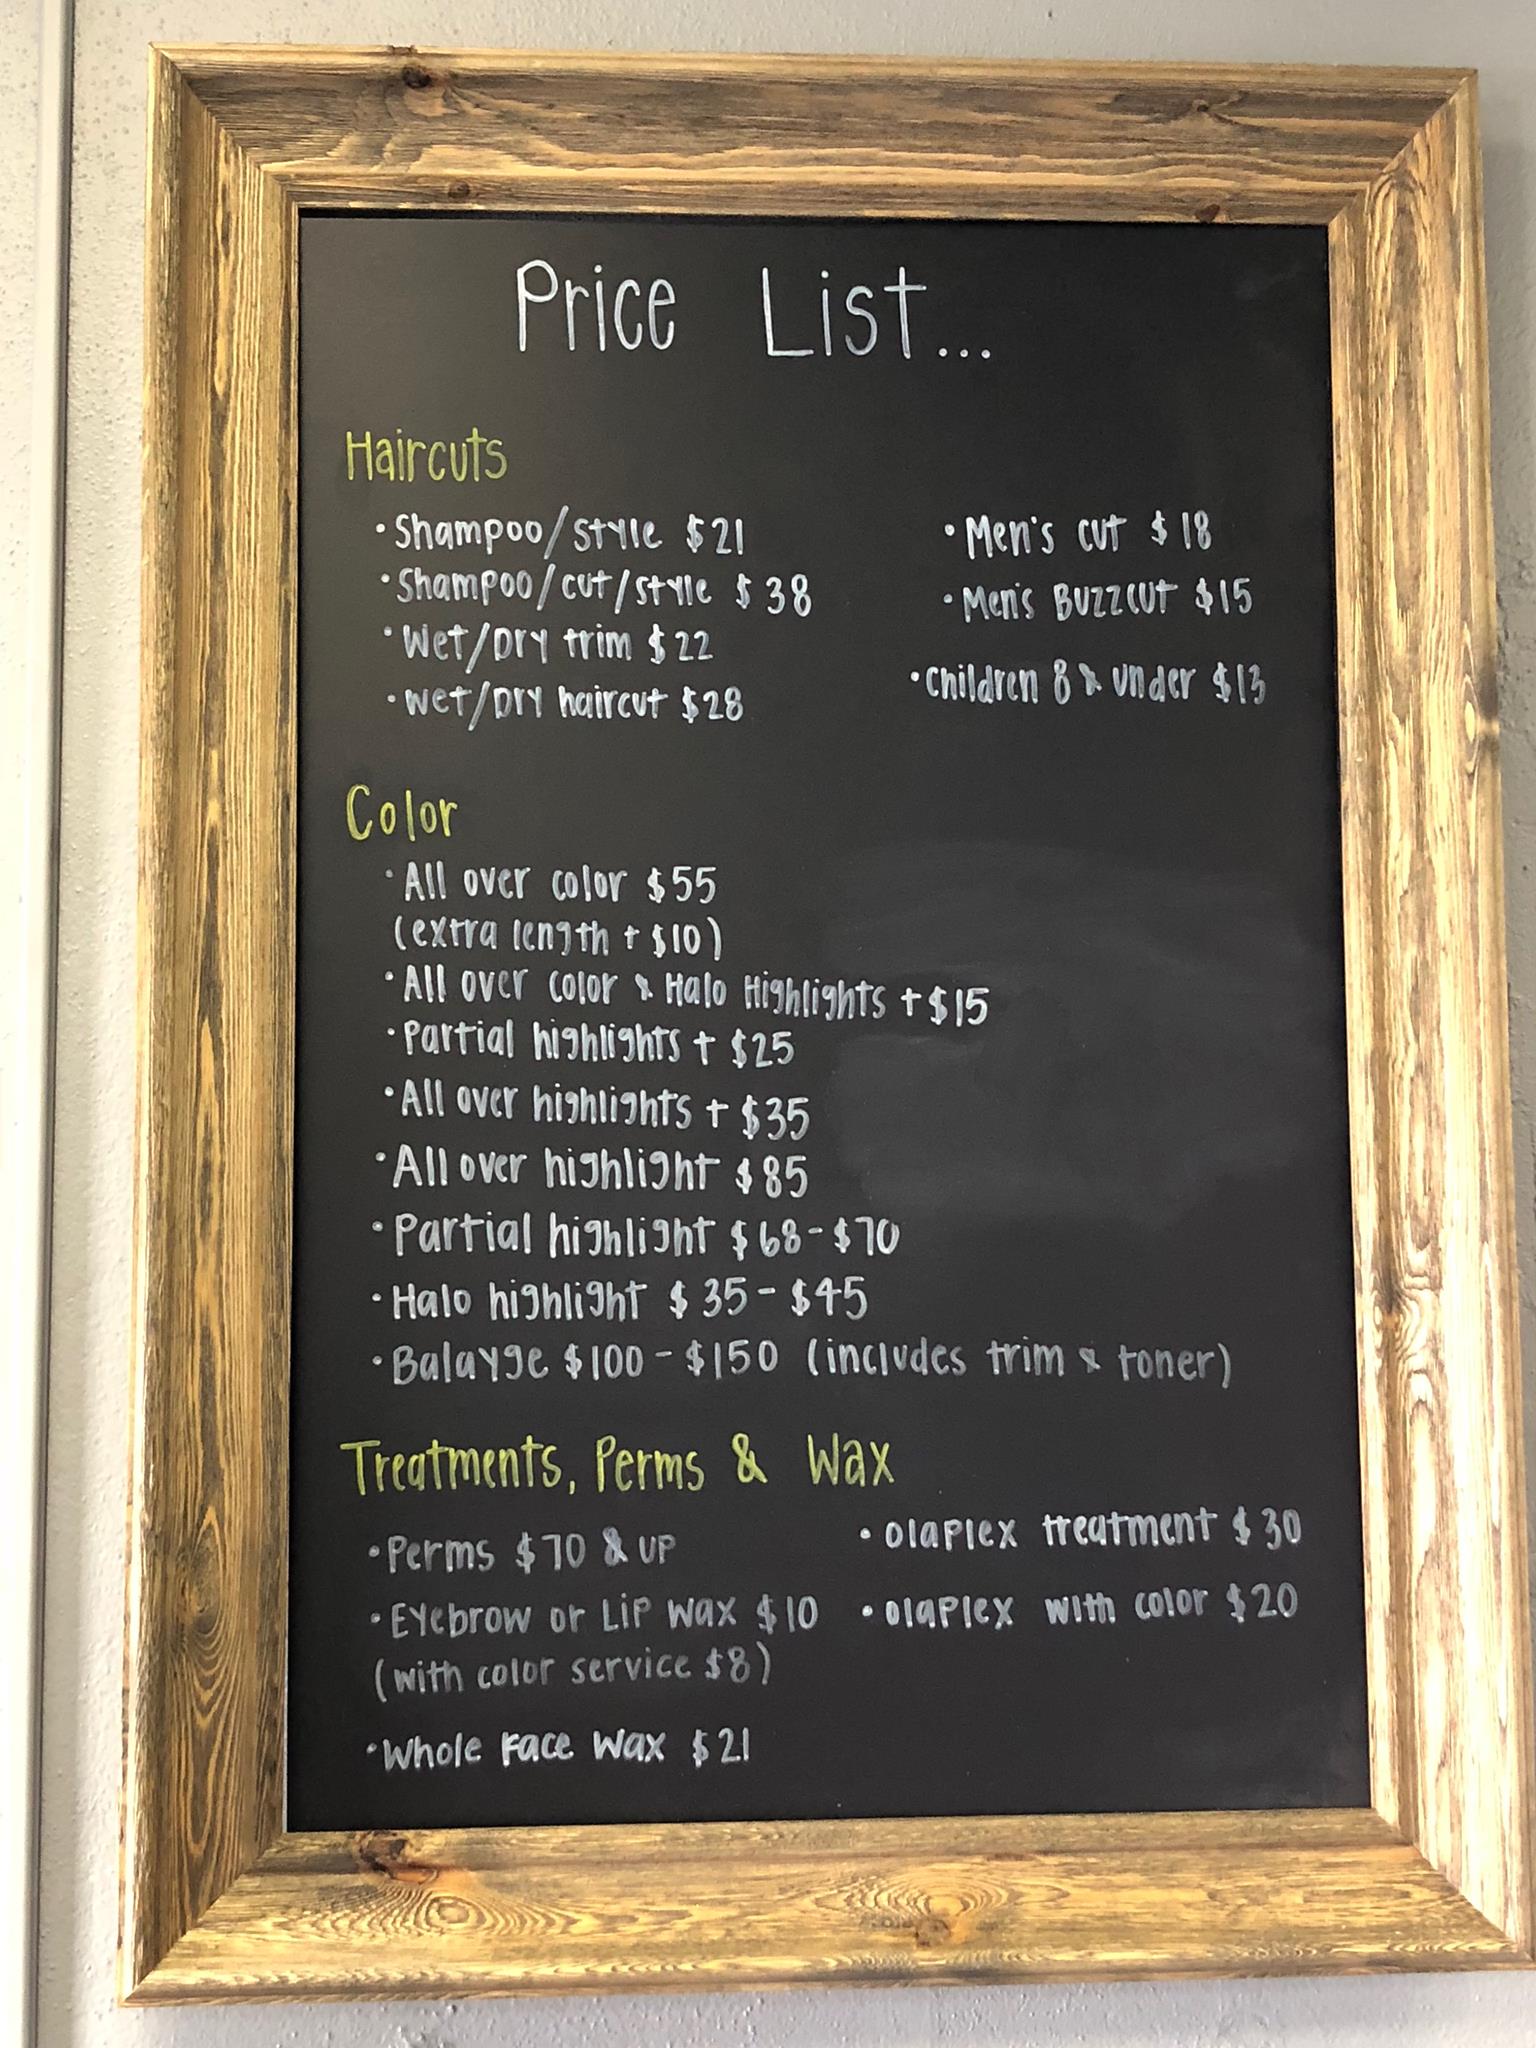 Price List...
Haircuts
• Shampoo/style $21
• Shampoo/cut/style $38
• Wet/Dry trim $22
• Wet/Dry haircut $28
• Men's cut $18
• Men's Buzzcut $15
• Children 8 & under $13
Color
• All over color $55
(extra length + $10)
• All over color & Halo Highlights + $15
• Partial highlights + $25
• All over highlights + $35
• All over highlight $85
• Partial highlight $68-$70
• Halo highlight $35-$45
• Balayge $100-$150 (includes trim & toner)
Treatments, Perms & Wax
• Perms $70 & up
• Eyebrow or Lip wax $10
(with color service $8)
• Whole Face Wax $21
• Olaplex treatment $30
• Olaplex with color $20